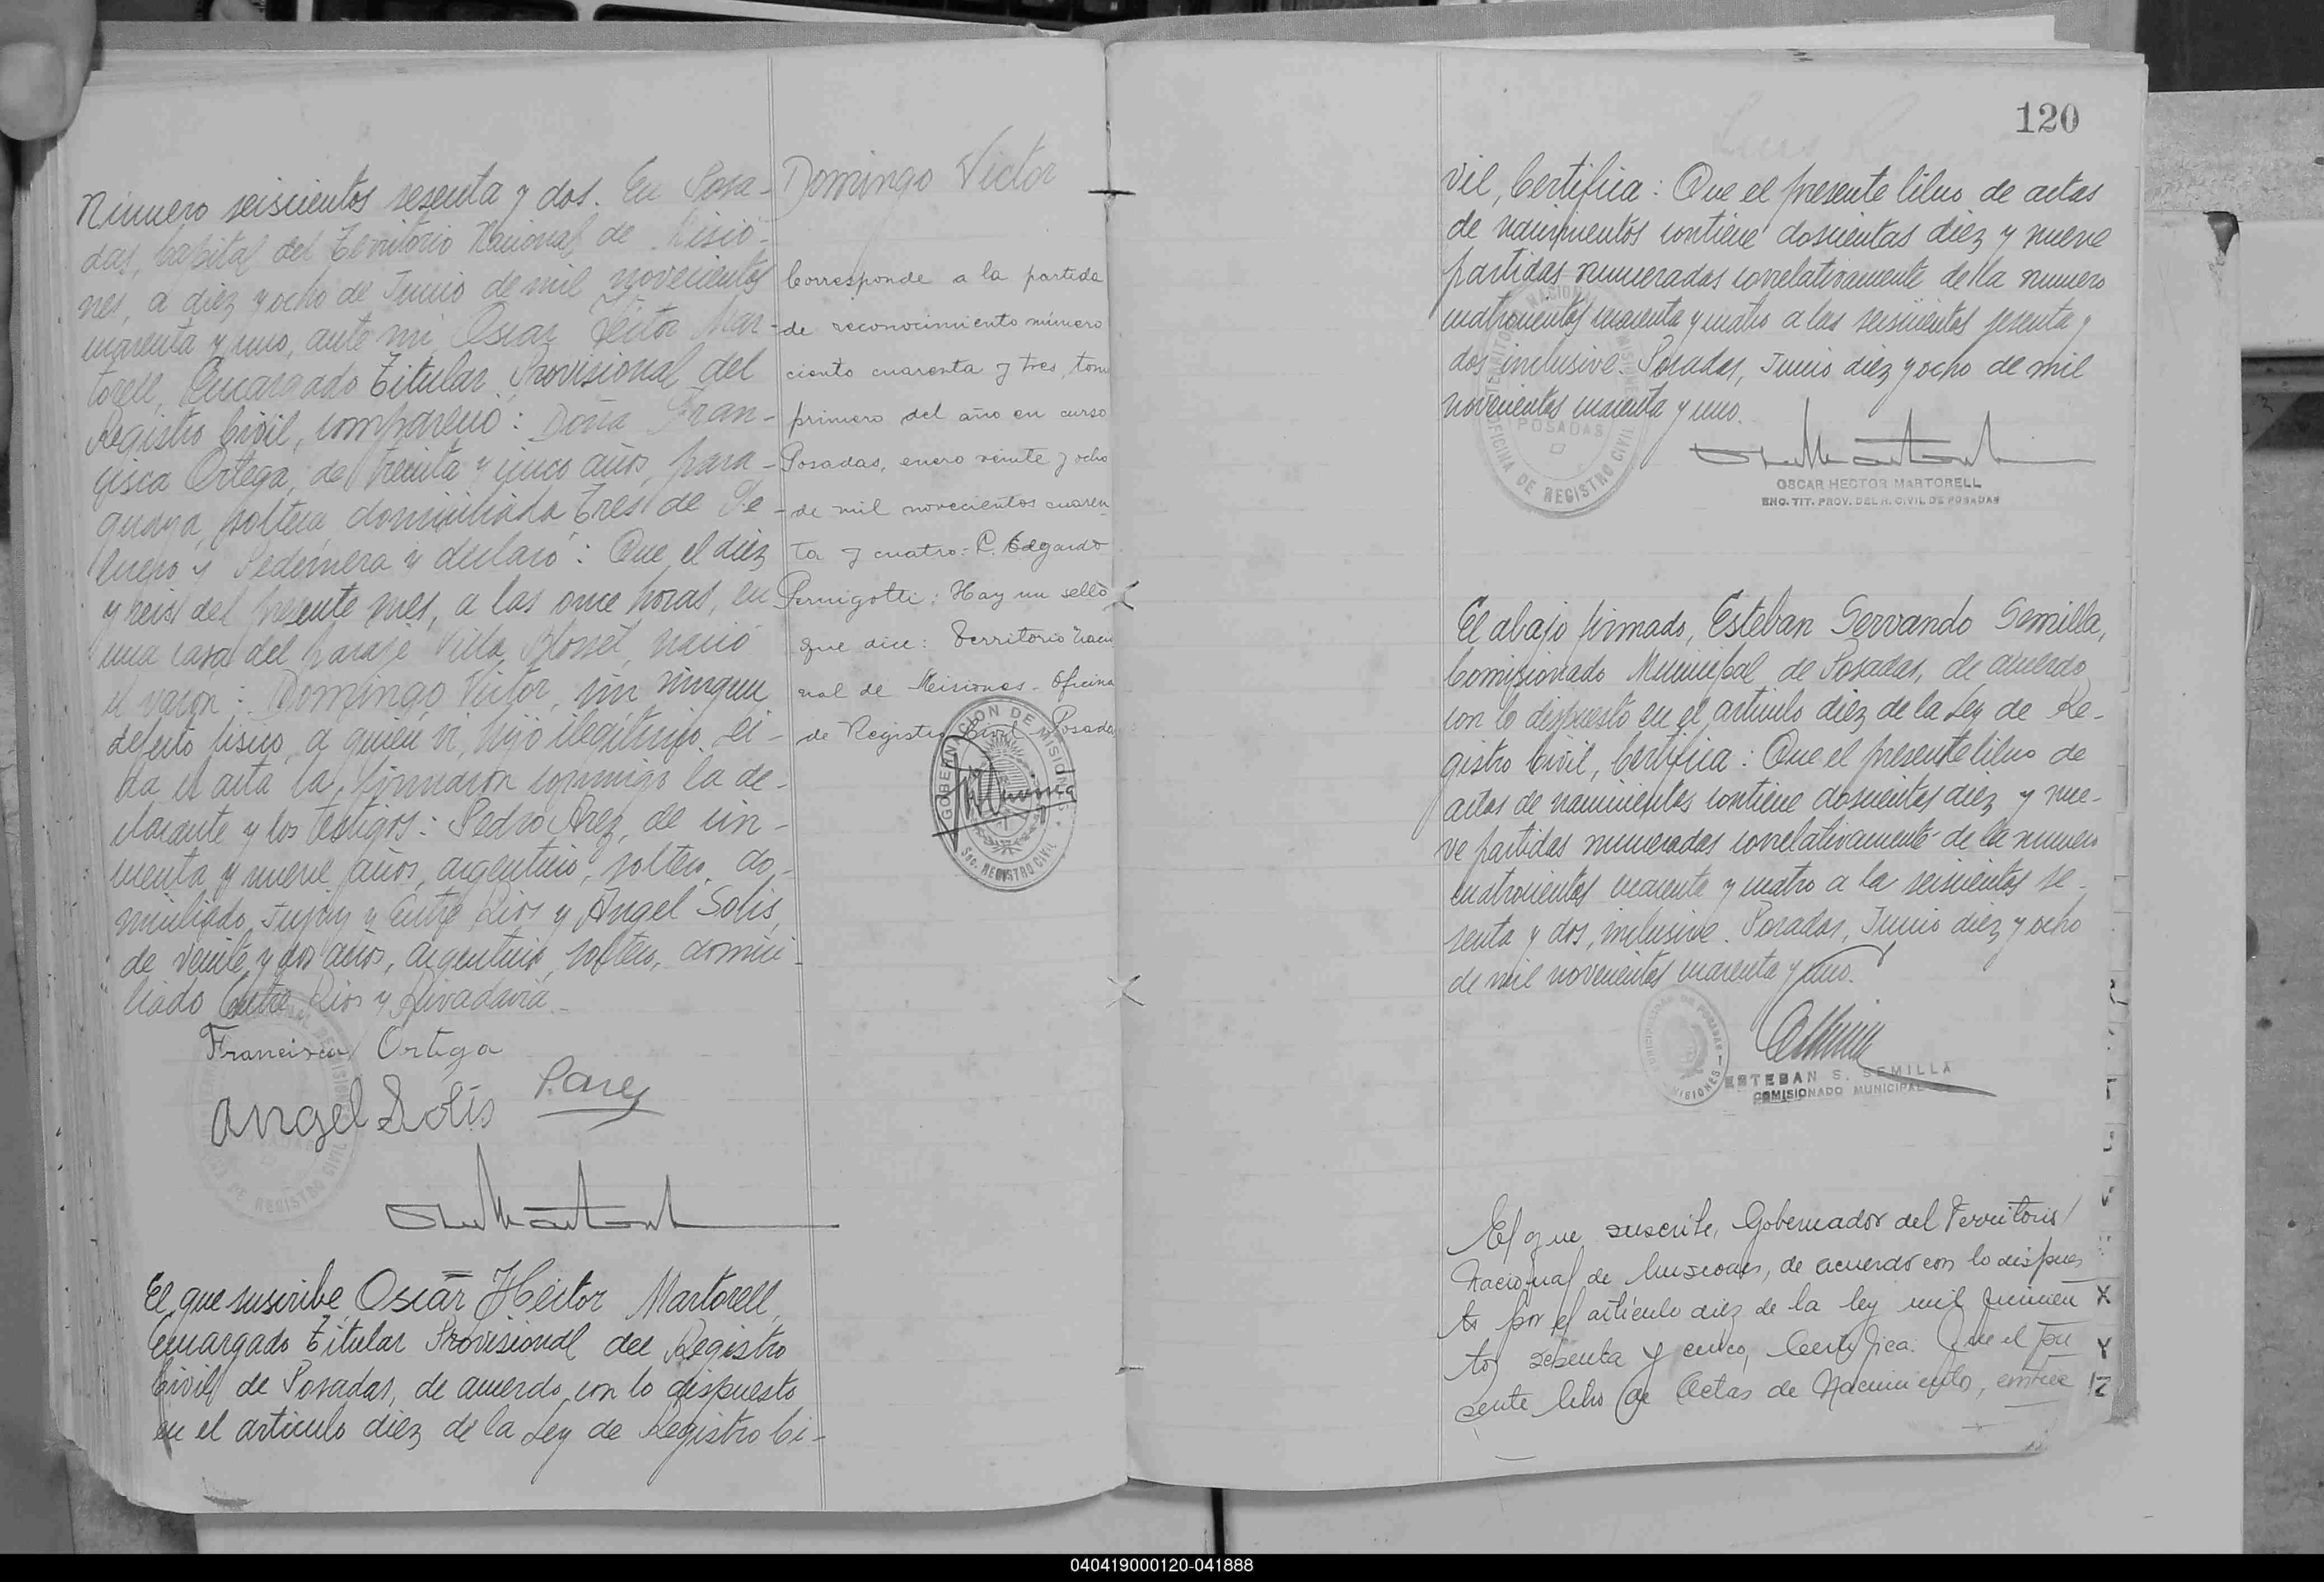 Número seiscientos sesenta y dos. En Posa-
das, Capital del Territorio Nacional de Misio-
nes, a diez y ocho de Junio de mil novecientos
cuarenta y uno, ante mi Oscar Héctor Mar-
torell, Encargado Titular Provisional del
Registro Civil, compareció: Doña Fran-
cisca Ortega, de treinta y cinco años, para-
guaya, soltera, domiciliada Tres de Fe-
brero y Pedernera y declaró: Que el diez
y seis del presente mes, a las once horas, en
una casa del paraje Villa Blosset, nació
el varón: Domingo Victor, sin ningun
defecto fisico, a quien vi, hijo ilegítimo. Lei-
da el acta la firmaron conmigo la de-
clarante y los testigos: Pedro Arez, de cin-
cuenta y nueve años, argentino, soltero, do-
miciliado Jujuy y Entre Rios y Ángel Solis,
de veinte y dos años, argentino, soltero, domici-
liado Entre Rios y Rivadavia.
Francisca Ortega
Angel Solis
P. Arez
El que suscribe Oscar Héctor Martorell,
Encargado Titular Provisional del Registro
Civil de Posadas, de acuerdo con lo dispuesto
en el articulo diez de la Ley de Registro Ci-
Domingo Victor
Corresponde a la partida
de reconocimiento número
ciento cuarenta y tres, tom
primero del año en curso
Posadas, enero veinte y ocho
de mil novecientos cuaren
ta y cuatro.- P. Edgardo
Pernigotti: Hay un sello
que dice: Territorio Nacio
nal de Misiones - Oficina
de Registro Civil - Posadas
GOBERNACION DE MISIONES
SEC. REGISTRO CIVIL
120
vil, Certifica: Que el presente libro de actas
de nacimientos contiene doscientas diez y nueve
partidas numeradas correlativamente de la numero
cuatrocientos cuarenta y cuatro a las seiscientos sesenta y
dos inclusive. Posadas, Junio diez y ocho de mil
novecientos cuarenta y uno.
POSADAS
OFICINA DE REGISTRO CIVIL
OSCAR HECTOR MARTORELL
ENC. TIT. PROV. DEL R. CIVIL DE POSADAS
El abajo firmado, Esteban Servando Semilla,
Comisionado Municipal de Posadas, de acuerdo
con lo dispuesto en el articulo diez de la Ley de Re-
gistro Civil, Certifica: Que el presente libro de
actas de nacimientos contiene doscientas diez y nue-
ve partidas numeradas correlativamente de la numero
cuatrocientos cuarenta y cuatro a la seiscientos se-
senta y dos, inclusive. Posadas, Junio diez y ocho
de mil novecientos cuarenta y uno.
MUNICIPALIDAD DE POSADAS
MISIONES
ESTEBAN S. SEMILLA
COMISIONADO MUNICIPAL
El que suscribe, Gobernador del Territorio
Nacional de Misiones, de acuerdo con lo dispues
to por el artículo diez de la ley mil quinien
tos sesenta y cinco, Certifica: Que el pre
sente libro de Actas de Nacimientos, contiene
040419000120-041888